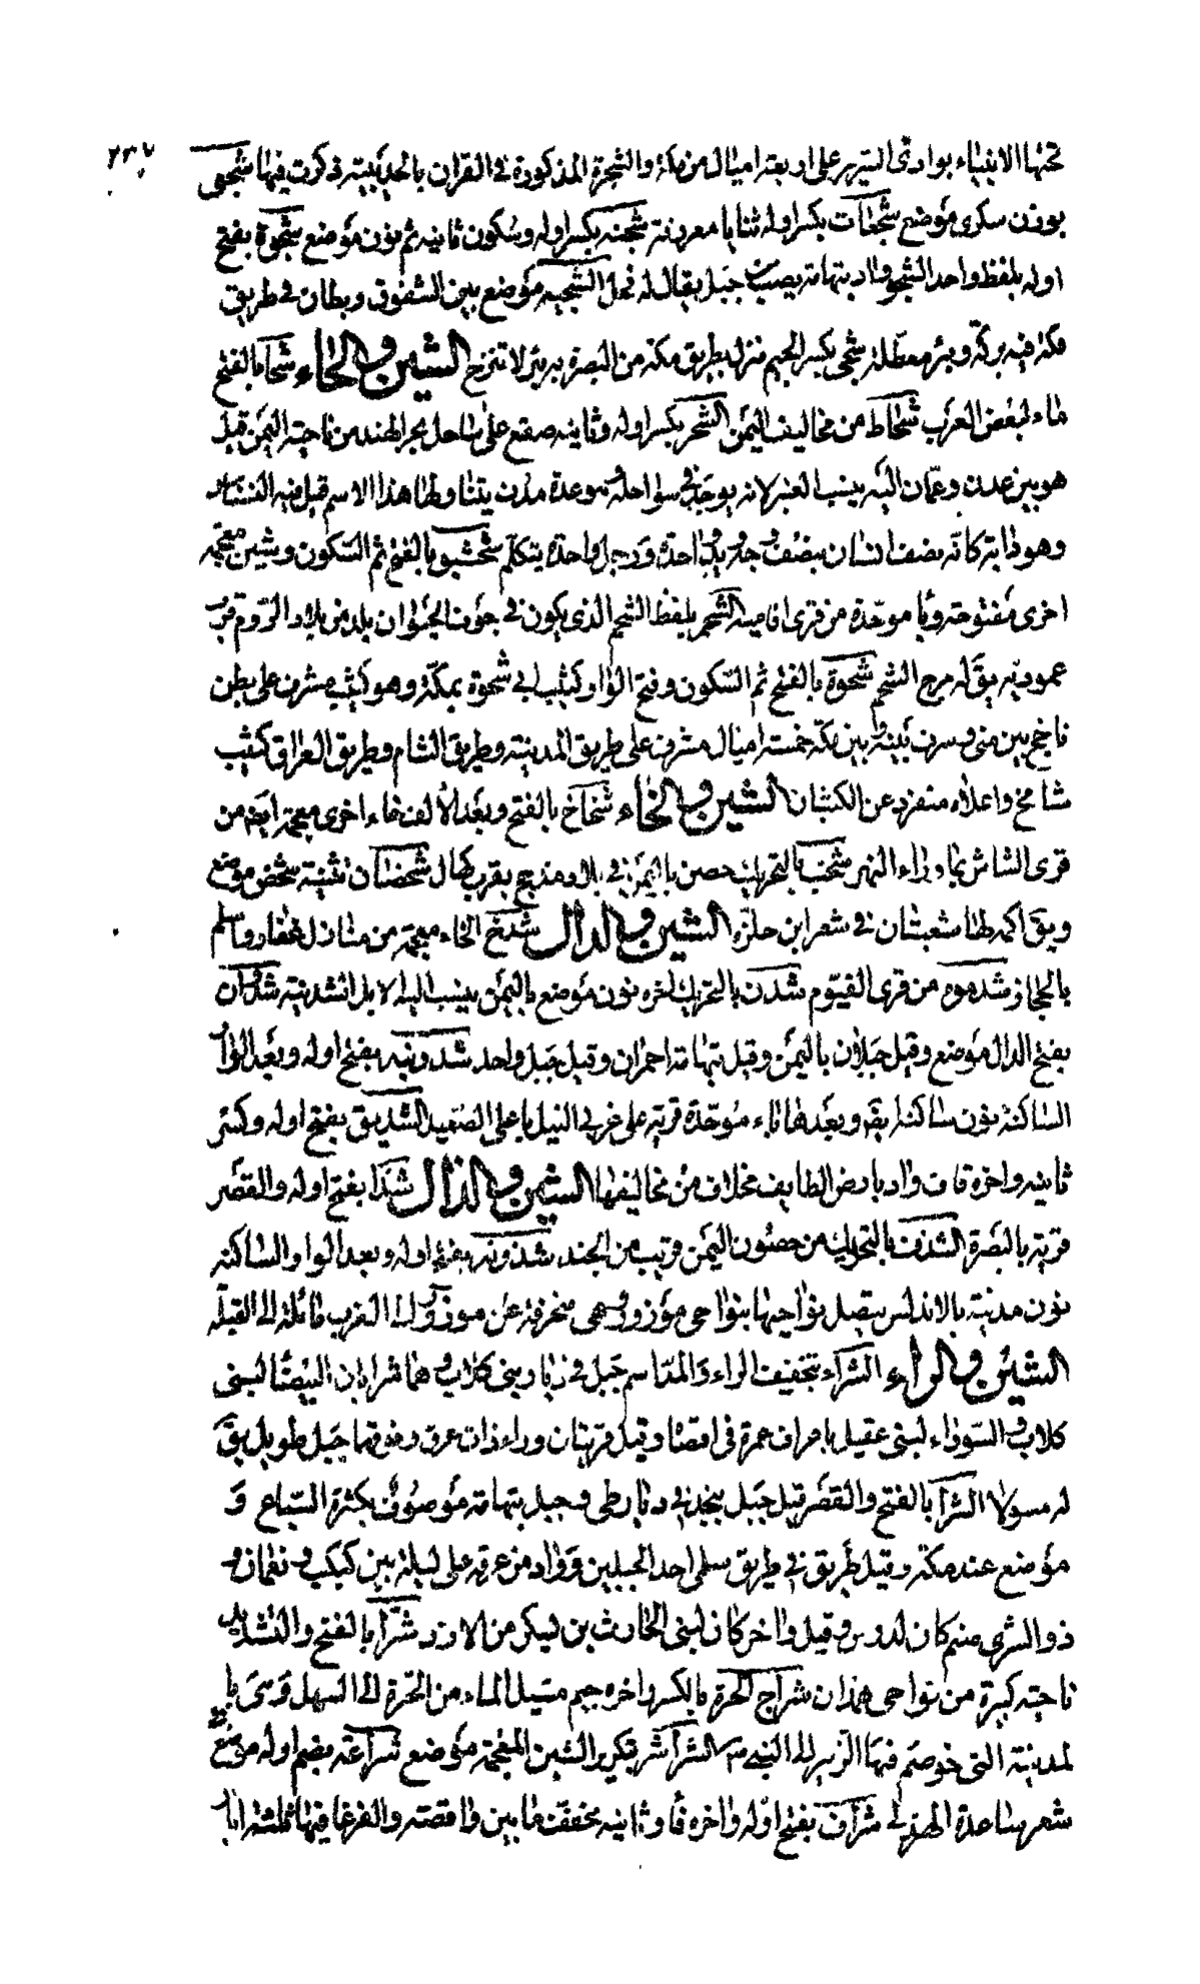 ٢٣٧
تحتها الانبياء بوادى السرر على اربعة اميال من مكة والشجرة المذكورة فى القران بالحديبية ذكرت فيها شجعى
بوزن سكرى موضع شجعات بكسر اوله ثنايا معروفة شجنه بكسر اوله وسكون ثانيه ثم نون موضع شجوة بفتح
اوله بلفظ واحد الشجو واد بتهامة يصب من جبل يقال له فحل الشجيه موضع بين الشقوق وبطان فى طريق
مكة فيه بركة وبئر معطلة شجى بكسر الجيم منزل بطريق مكة من البصرة بربئر لا تنزح الشين والحاء شحا بالفتح
ماء لبعض العرب شحاط من مخاليف اليمن الشحر بكسر اوله وثانيه صقع على ساحل بحر الهند من ناحية اليمن قيل
هو بين عدن وعمان اليه ينسب العنبر لانه يوجد فى سواحله وعدة مدن يتناولها هذا الاسم قيل فيه النسناس
وهو دابة كانه نصف انسان بنصف وجه ويد واحدة ورجل واحدة يتكلم شحشبو بالفتح ثم السكون وشين معجمه
اخرى مفتوحة وبا موحدة من قرى افاميه الشحم بلفظ الشحم الذى يكون فى جوف الحيوان بلد من بلاد الروم قرب
عموديه يق له مرج الشحم شحوة بالفتح ثم السكون وفتح الواو كثيب ابى شحوة بمكة وهو كثيب مشرف على بطن
ناجخ بين منى وسرف بينه وبين مكة خمسة اميال مشرف على طريق المدينة وطريق الشام وطريق العراق كثيب
شامخ واعلاه منفرد عن الكثبان الشين والخاء شخاخ بالفتح وبعد الالف خاء اخرى معجمة ايضم من
قرى الشاش بما وراء النهر شخب بالتحريك حصن باليمن فى بلاد مذحج بقرب كحال شخصان تثنية شخص موضع
ويق اكمة لها شعبتان فى شعر ابن حلزه الشين والدال شدخ الخاء معجمة من منازل غفار واسلم
بالحجاز شدموه من قرى الفيوم شدن بالتحريك اخره نون موضع باليمن ينسب اليه الابل الشدنية شدوان
بفتح الدال موضع وقيل جبلان باليمن وقيل بتهامة احمران وقيل جبل واحد شدونيه بفتح اوله وبعد الواو
الساكنة نون ساكنة ايضم وبعدها باء موحدة قرية على غربى النيل باعلى الصعيد الشديق بفتح اوله وكسر
ثانيه واخره قاف واد بارض الطايف مخلاف من مخاليفها الشين والذال شذا بفتح اوله والقصر
قرية بالبصرة الشذف بالتحريك من حصون اليمن قريب من الجند شذونه بفتح اوله وبعد الواو الساكنه
نون مدينة بالاندلس يتصل نواحيها بنواحى موزور وهى منحرفة عن موزور الى الغرب مائلة الى القبلة
الشين والراء الشراء بتخفيف الراء والمد اسم جبل فى ديار بنى كلاب وهما شرايان البيضا لبنى
كلاب والسوداء لبنى عقيل باعراف عمرة فى اقصاه وقيل قريتان وراء ذات عرق وفوقهما جبل طويل يق
له مسولا الشرا بالفتح والقصر قيل جبل بنجد فى ديار طى وجبل بتهامة موصوف بكثرة السباع و
موضع عند مكة وقيل طريق فى طريق سلمى احد الجبلين وواد من عرفه على ليلة بين كبكب ونعمان و
ذو الشرى صنم كان لدوس وقيل واخر كان لبنى الحارث بن ليكر من الازد شرا بالفتح والتشديد
ناحية كبيرة من نواحى همذان شراج الحرة بالكسر واخره جيم مسيل الماء من الحرة الى السهل وهى با
لمدينة التى خوصم فيها الزبير الى النبى ص الشراشر تكرير الشين المعجمة موضع شراعة بضم اوله موضع
شعر ساعدة الهذلى شراف بفتح اوله واخره فا وثانيه مخففة ما بين واقصة والفرعا فيها ثلثة ابار